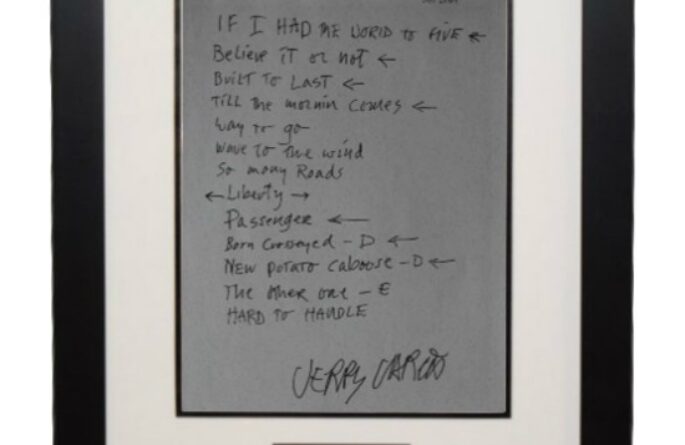 IF I HAD THE WORLD TO GIVE ←
Believe iT or not ←
BuilT To LAST ←
Till the mornin comes ←
Way To go
Wave To the wind
So many Roads
← Liberty →
Passenger ←
Born Crosseyed - D ←
NEW POTATO Caboose - D ←
The other one - E
HARD TO HANDLE
JERRY GARCIA